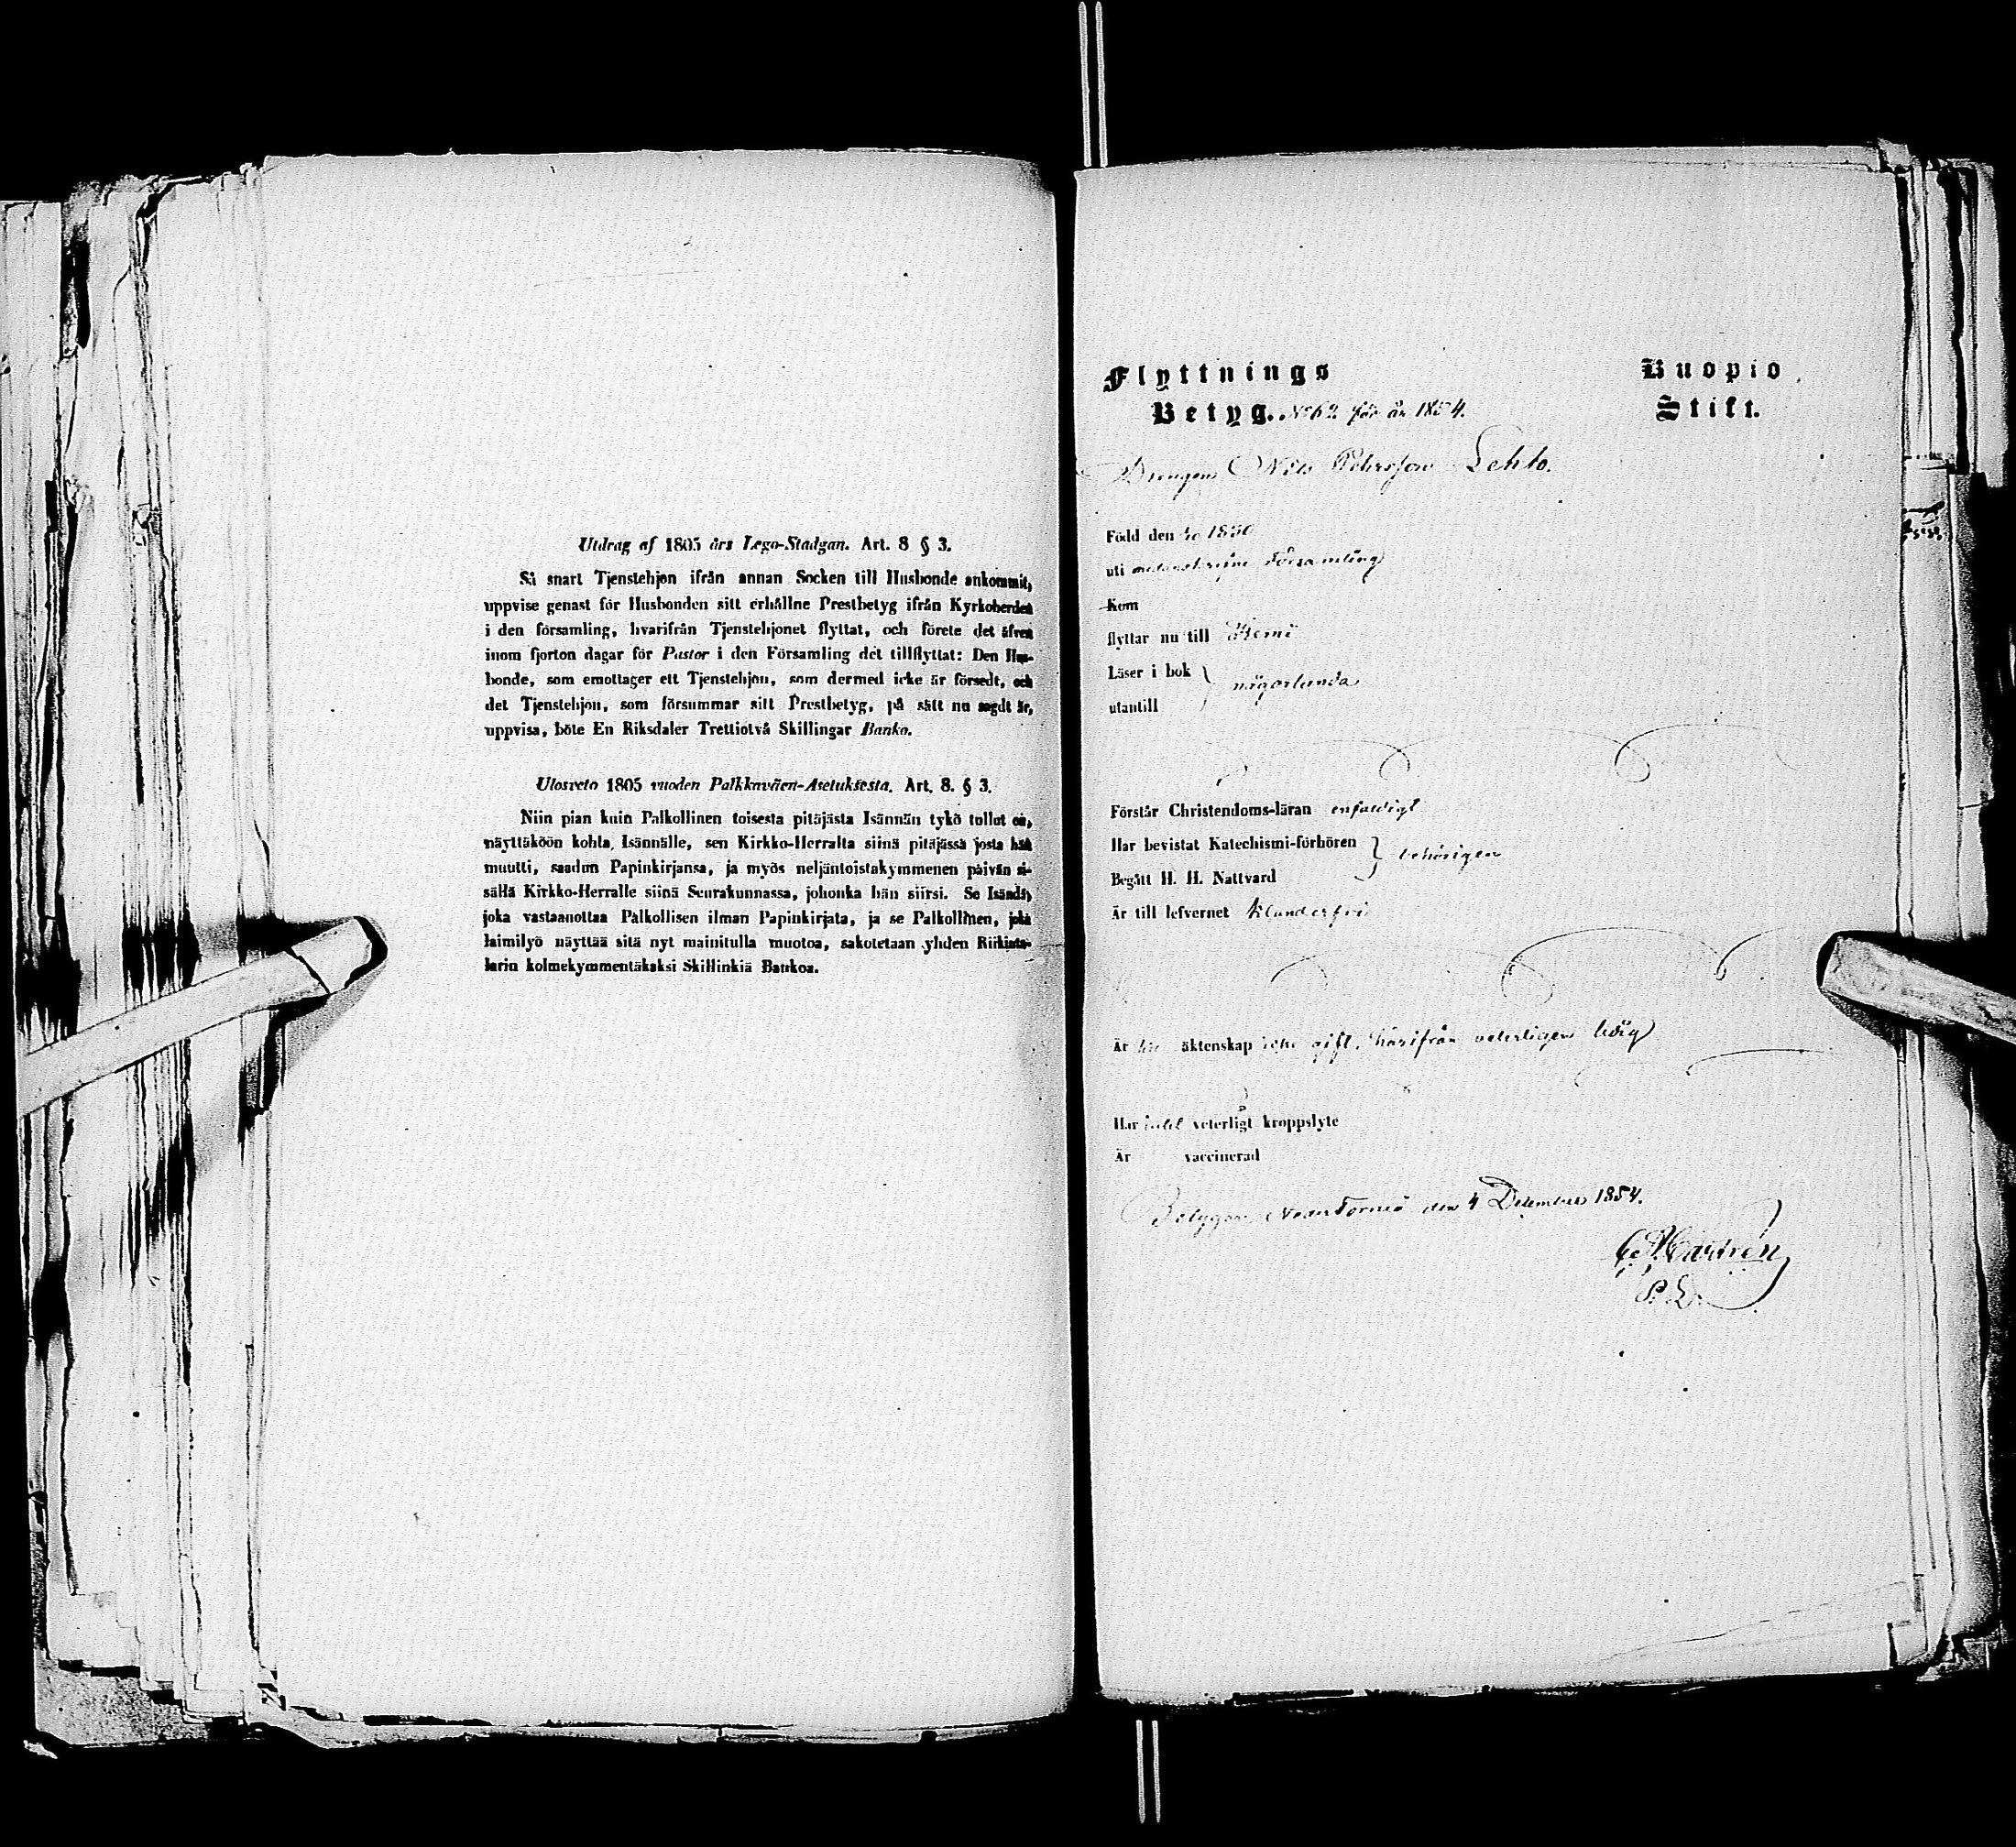 Utdrag af 1805 års Lego-Stadgan. Art. 8 § 3.
Så snart Tjenstehjon ifrån annan Socken till Husbonde ankommit,
uppvise genast för Husbonden sitt erhållne Prestbetyg ifrån Kyrkoherden
i den församling, hvarifrån Tjenstehjonet flyttat, och förete det äfven
inom fjorton dagar för Pastor i den Församling det tillflyttat: Den Hus-
bonde, som emottager ett Tjenstehjon, som dermed icke är försedt, och
det Tjenstehjon, som försummar sitt Prestbetyg, på sätt nu sagdt är,
uppvisa, böte En Riksdaler Trettiotvå Skillingar Banko.
Ulosveto 1805 vuoden Palkkaväen-Asetuksesta. Art. 8. § 3.
Niin pian kuin Palkollinen toisesta pitäjästa Isännän tykö tullut on,
näyttäköön kohta, Isännälle, sen Kirkko-Herralta siinä pitäjässä josta hän
muutti, saadun Papinkirjansa, ja myös neljäntoistakymmenen päivän si-
sällä Kirkko-Herralle siinä Seurakunnassa, johonka hän siirsi. Se Isändä,
joka vastaanottaa Palkollisen ilman Papinkirjata, ja se Palkollinen, joka
laimilyö näyttää sitä nyt mainitulla muotoa, sakotetaan yhden Riikinta-
larin kolmekymmentäkaksi Skillinkiä Bankoa.
Flyttnings
Betyg. No 62 för år 1854.
Kuopio
Stift.
Drengen Nils Pehrsson Lehto.
Född den 1830
uti nedanskrifne Församling
Kom
flyttar nu till Kemi
Läser i bok } någorlunda
utantill
Förstår Christendoms-läran enfaldigt
Har bevistat Katechismi-förhören } behörigen
Begått H. H. Nattvard
Är till lefvernet klanderfri
Är äktenskap icke gift, härifrån veterligen ledig
Har intet veterligt kroppslyte
Är vaccinerad
Betygar, Neder Torneå den 4 December 1854.
Castrén
P. L.